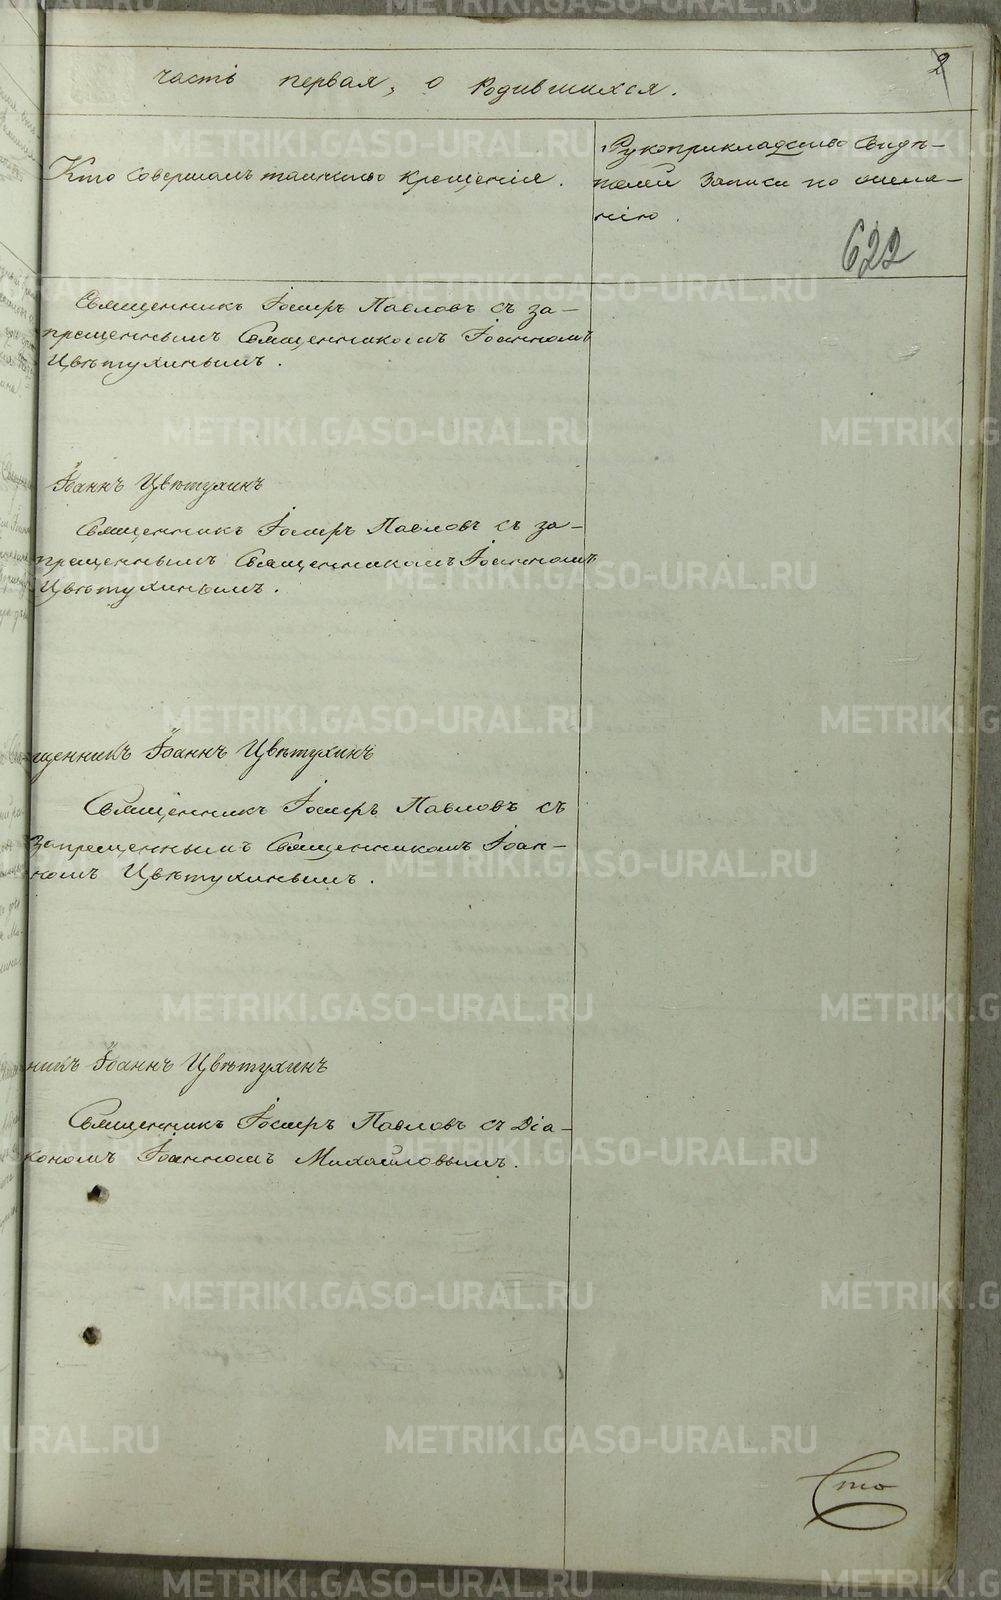 часть первая, о Родившихся.
2
Кто совершалъ таинство крещенія.
Рукоприкладство свидѣ-
телей записи по жела-
нію.
622
Священникъ Іосифъ Павловъ съ за-
прещеннымъ Священникомъ Іоанномъ
Цвѣтухинымъ.
Іоаннъ Цвѣтухинъ
Священникъ Іосифъ Павловъ съ за-
прещеннымъ Священникомъ Іоанномъ
Цвѣтухинымъ.
щенникъ Іоаннъ Цвѣтухинъ
Священникъ Іосифъ Павловъ съ
Запрещеннымъ Священникомъ Іоан-
номъ Цвѣтухинымъ.
никъ Іоаннъ Цвѣтухинъ
Священникъ Іосифъ Павловъ съ Діа-
кономъ Іоанномъ Михайловымъ.
METRIKI.GASO-URAL.RU